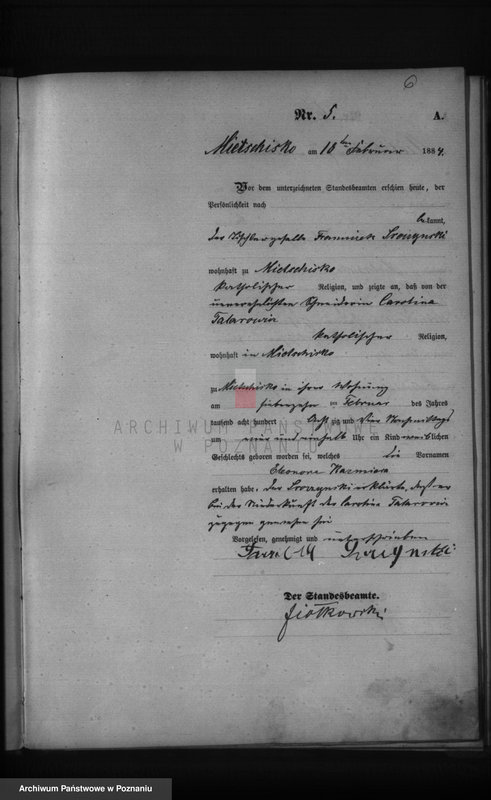 6
Nr. 5. A.
Mietschisko am 10ten Februar 1884.
Vor dem unterzeichneten Standesbeamten erschien heute, der
Persönlichkeit nach
bekannt,
der Tischlergeselle Franciszek Sroczynski
wohnhaft zu Mietschisko
katholischer Religion, und zeigte an, daß von der
unverehelichten Schneiderin Carolina
katholischer Religion,
wohnhaft in Mietschisko
zu Mietschisko in ihrer Wohnung
am im Februar des Jahres
tausend acht hundert Acht zig und Vier Nachmittags
um ein halb Uhr ein Kind weiblichen
Geschlechts geboren worden sei, welches die Vornamen
Eleonore
erhalten habe. Der Sroczynski erklärte, daß er
bei der Niederkunft der Carolina
zugegen gewesen sei
Vorgelesen, genehmigt und unterschrieben
Sroczynski
Der Standesbeamte.
ARCHIWUM PAŃSTWOWE
W POZNANIU
Archiwum Państwowe w Poznaniu